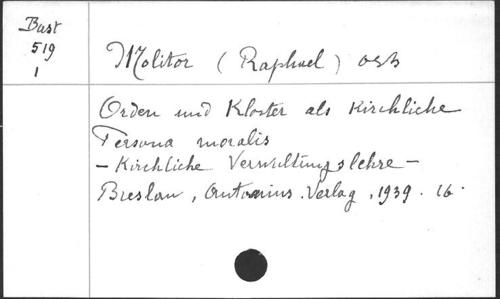 Bast
519
1
Molitor (Raphael) OSB
Orden und Kloster als Kirchliche
Persona moralis
- Kirchliche Verwaltungslehre -
Breslau, Antonius. Verlag, 1939. 16.